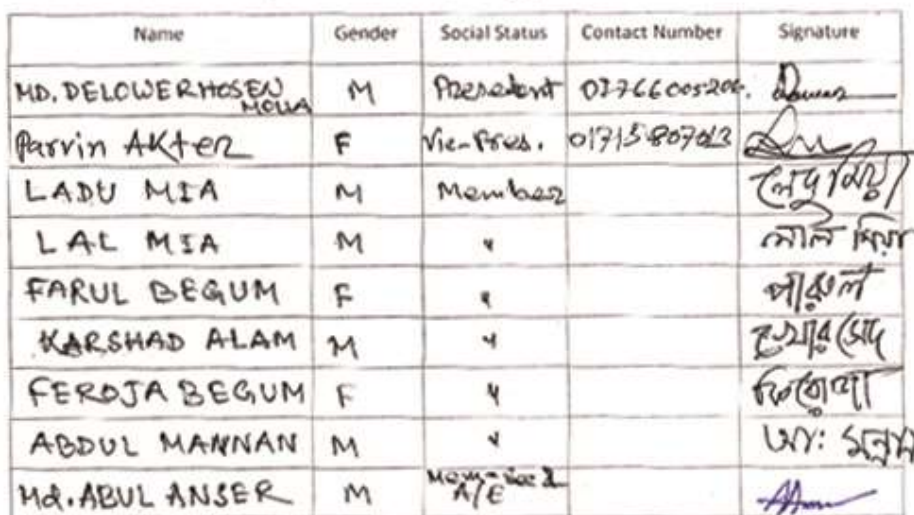 Name Gender Social Status Contact Number Signature
MD. DELOWER HOSEN MOLLA M Presedent
Parvin AKter F Vic-Pres. 01715807013
LADU MIA M Member লেদু মিয়া
LAL MIA M " লাল মিয়া
FARUL BEGUM F " পারুল
KARSHAD ALAM M "
FEROJA BEGUM F " ফিরোজা
ABDUL MANNAN M " আ: মন্নান
Md. ABUL ANSER M A/E